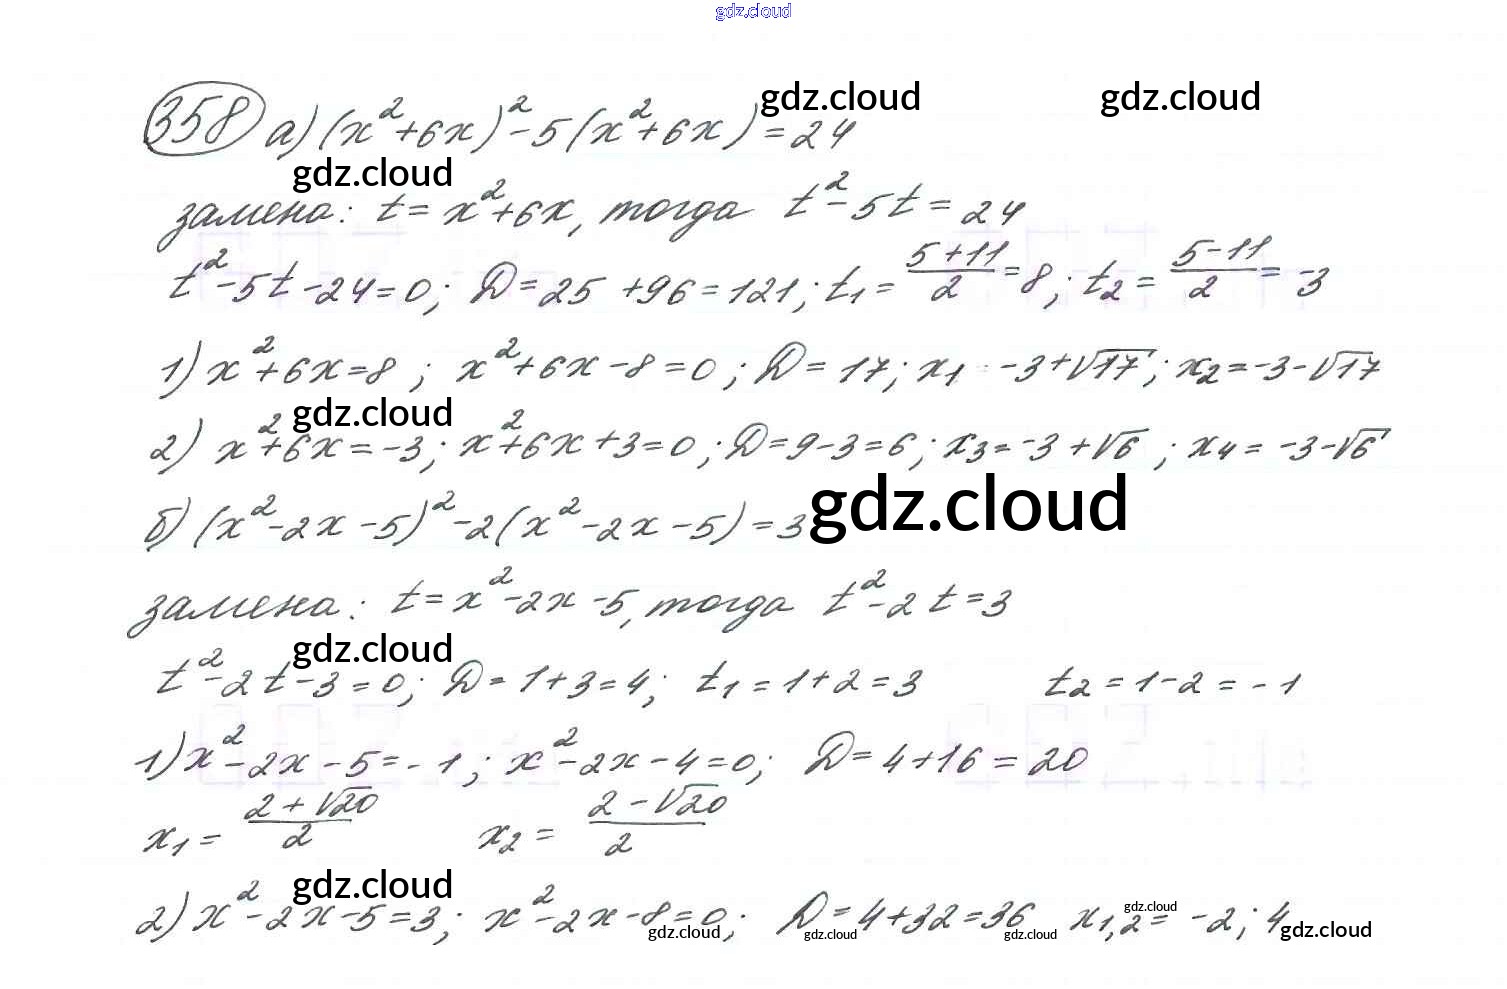 gdz.cloud
gdz.cloud gdz.cloud
358 а) (x²+6x)²-5(x²+6x)=24
gdz.cloud
замена: t=x²+6x, тогда t²-5t=24
t²-5t-24=0; D=25+96=121; t₁=(5+11)/2=8; t₂=(5-11)/2=-3
1) x²+6x=8; x²+6x-8=0; D=17; x₁ -3+√17; x₂=-3-√17
gdz.cloud
2) x²+6x=-3; x²+6x+3=0; D=9-3=6; x₃=-3+√6; x₄=-3-√6
б) (x²-2x-5)²-2(x²-2x-5)=3
gdz.cloud
замена: t=x²-2x-5, тогда t²-2t=3
gdz.cloud
t²-2t-3=0; D=1+3=4; t₁=1+2=3 t₂=1-2=-1
1) x²-2x-5=-1; x²-2x-4=0; D=4+16=20
x₁=(2+√20)/2 x₂=(2-√20)/2
gdz.cloud
2) x²-2x-5=3; x²-2x-8=0; D=4+32=36 x₁,₂=-2; 4
gdz.cloud gdz.cloud gdz.cloud gdz.cloud gdz.cloud